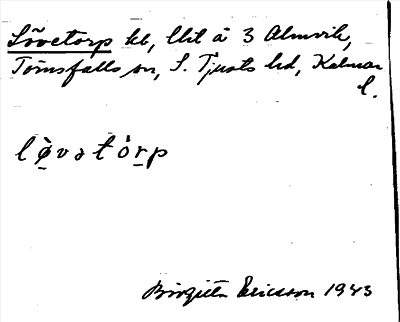 Lövetorp kb, lht å 3 Almvik,
Törnsfalls sn, S. Tjusts hd, Kalmar
l.
lø̀vatórp
Birgitta Ericsson 1943